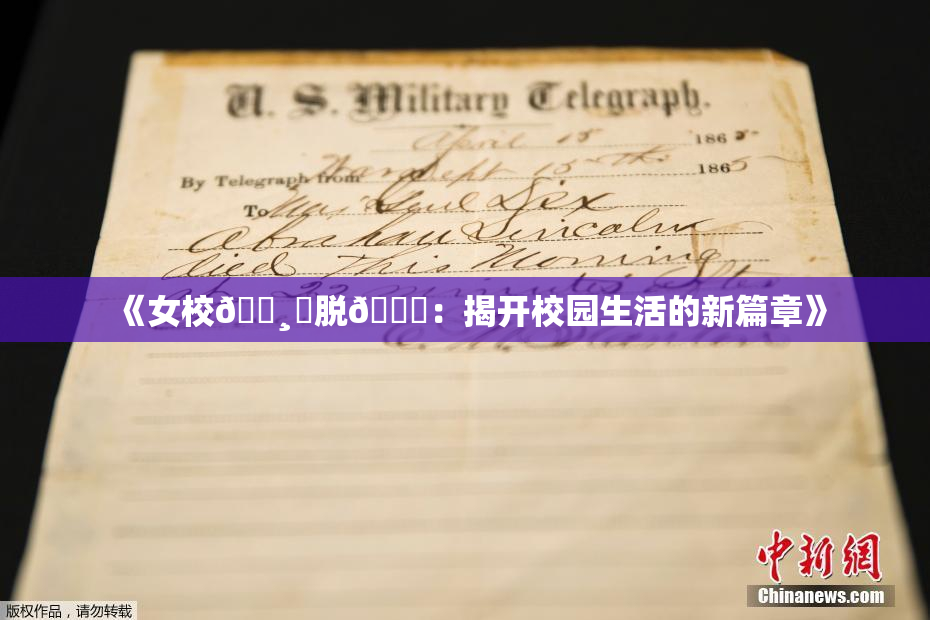 U. S. Military Telegraph.
April 15 1865
By Telegraph from War Dept 15th 1865
To Maj Genl Dix
Abraham Lincoln
died This Morning
at 22 minutes after
《女校ð：揭开校园生活的新篇章》
E. M. Stanton
中新網
Chinanews.com
版权作品，请勿转载